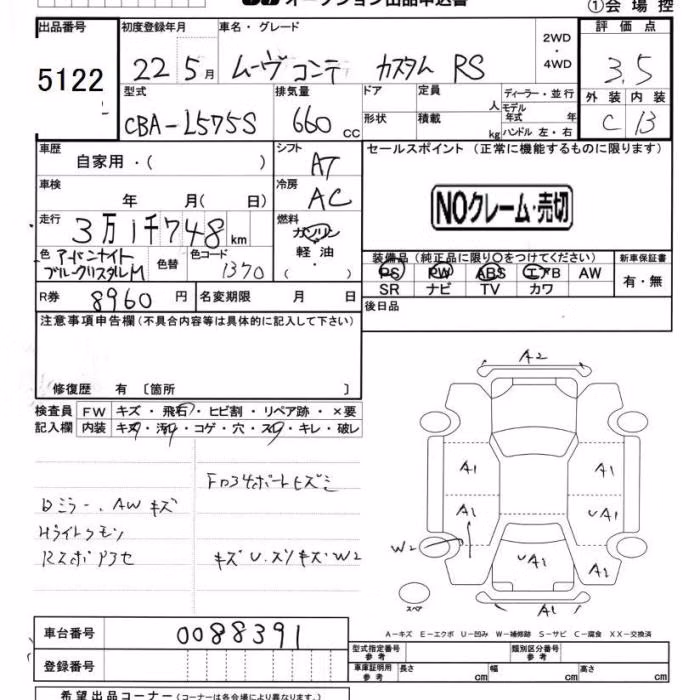 オークション出品申込書
①会場控
出品番号 初度登録年月 車名・グレード 評価点
5122 22年5月 ムーヴコンテ カスタム RS 2WD・4WD 3.5
型式 排気量 ドア 定員 人 ディーラー・並行 外装 内装
CBA-L575S 660cc 形状 積載 kg モデル年式 年 ハンドル 左・右 C B
車歴 自家用・( ) シフト AT セールスポイント (正常に機能するものに限ります)
車検 年 月( 日) 冷房 AC
NOクレーム・売切
走行 3万1千748km 燃料 ガソリン 軽油 ( )
色 アーバンナイトブルークリスタルM 色替 色コード 1370
装備品 (純正品に限り○をつけてください) 新車保証書
PS PW ABS エアB AW 有・無
SR ナビ TV カワ
R券 8960円 名変期限 月 日 後日品
注意事項申告欄 (不具合内容等は具体的に記入して下さい)
修復歴 有 〔箇所 〕
検査員 FW キズ・飛石・ヒビ割・リペア跡・×要
記入欄 内装 キズ・汚れ・コゲ・穴・スレ・キレ・破レ
Dミラー、AWキズ
Hライトクモリ
A2
A1 A1
A1 UA1
W2 UA1 A2
A1
スペア
A-キズ E-エクボ U-凹み W-補修跡 S-サビ C-腐食 XX-交換済
車台番号 0088391
登録番号
型式指定番号 参考 類別区分番号 参考
車庫証明用 参考 長さ cm 幅 cm 高さ cm
希望出品コーナー (コーナーは各会場により異なります)